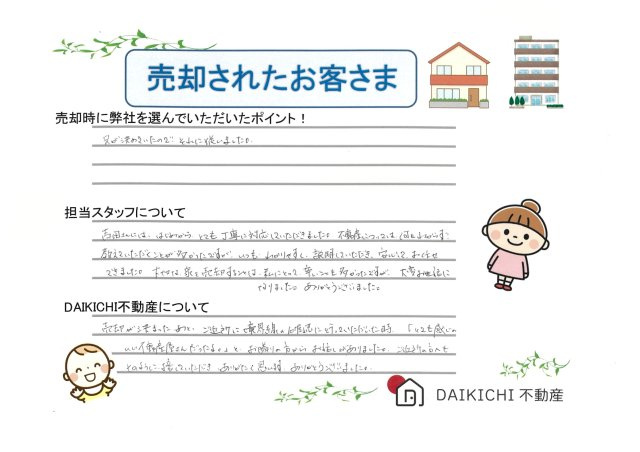 売却されたお客さま
売却時に弊社を選んでいただいたポイント！
父が決めていたので それに従いました。
担当スタッフについて
吉田さんには、はじめから とても丁寧に対応していただきました。不動産については 何もわからず
教えていただくことが多かったですが、いつも わかりやすく、説明していただき、安心して、お任せ
できました。 家を売却するには、私にとって 多かったですが、大変お世話に
なりました。ありがとうございました。
DAIKICHI不動産について
売却が決まったあと、ご近所に 境界線の確認に 行っていただいた時、「とても感じの
いい不動産屋さんだったよ。」と お隣りの方から お話しがありました。ご近所の方へも
そのように接していただき ありがたく思います。ありがとうございました。
DAIKICHI 不動産